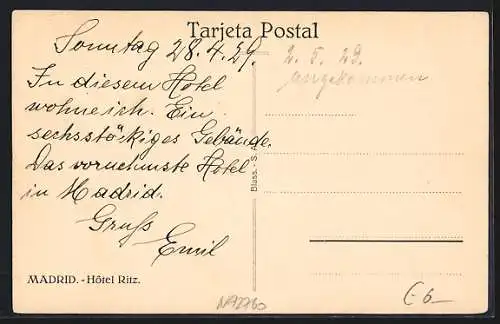 Tarjeta Postal
Sonntag 28.4.29.
In diesem Hotel
wohne ich. Ein
sechsstöckiges Gebäude.
Das vornehmste Hotel
in Madrid.
Gruß
Emil
2. 5. 29.
angekommen
MADRID. - Hôtel Ritz.
N92760
€6-